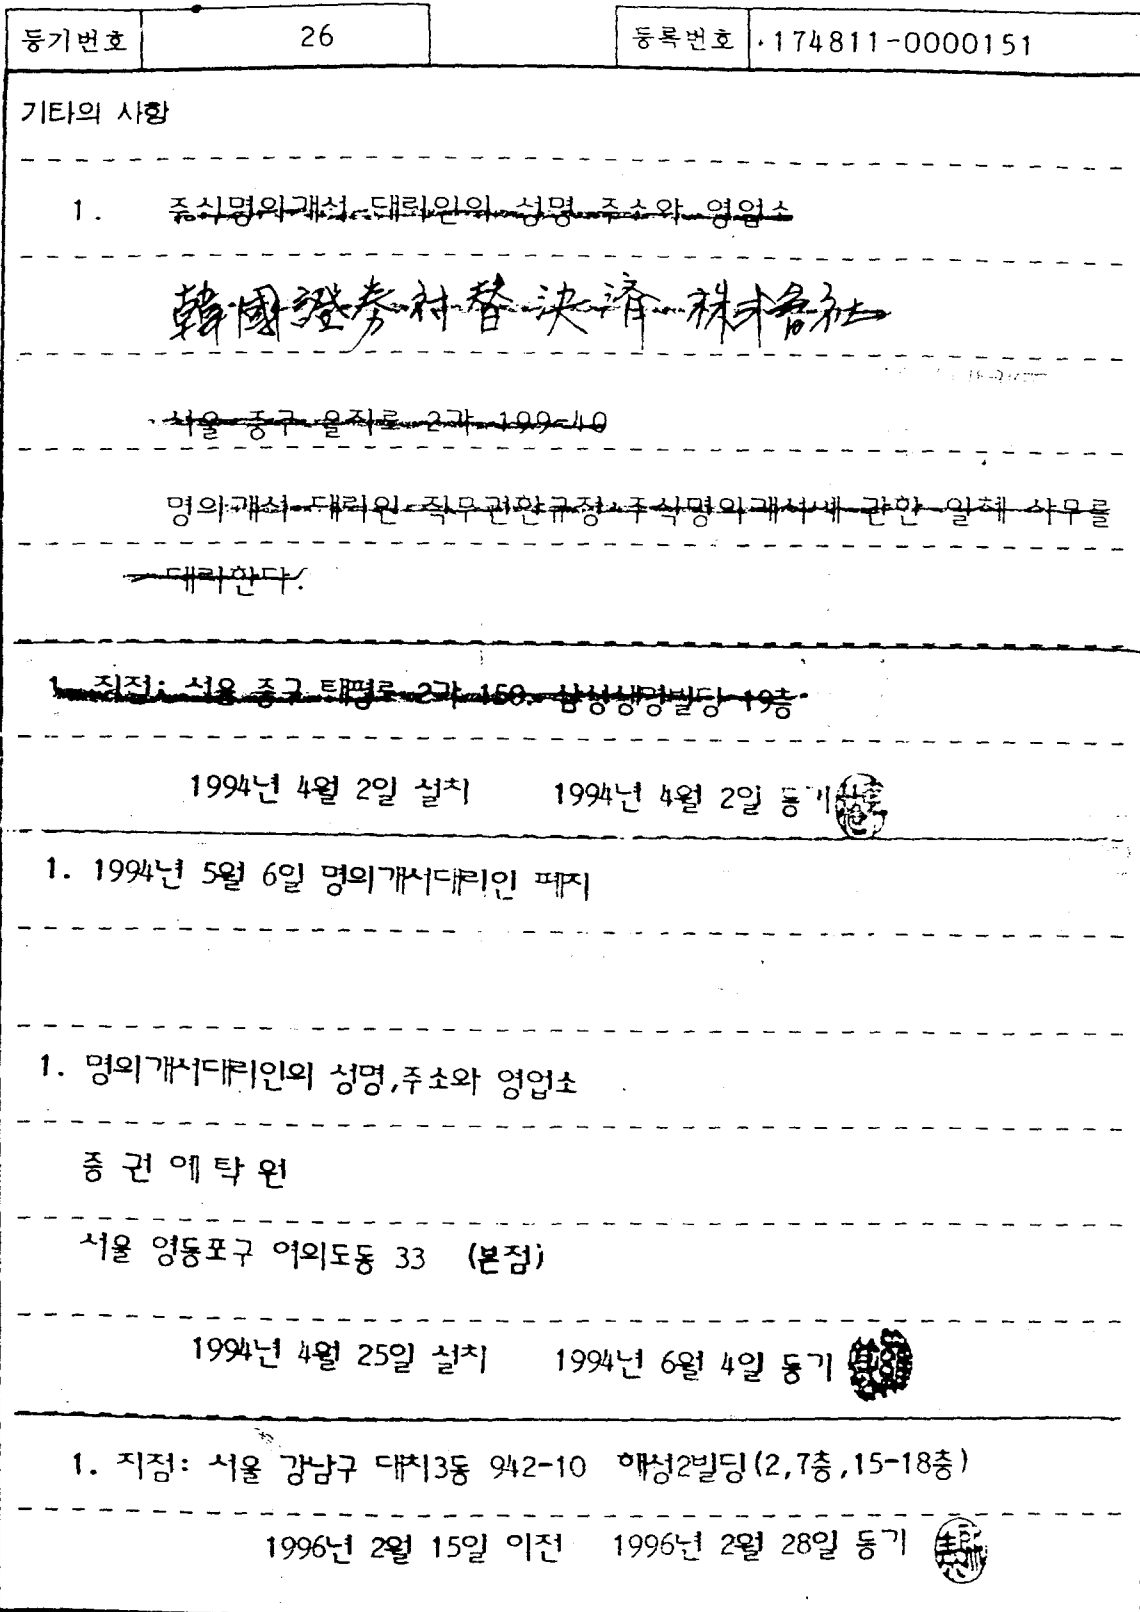 등기번호 26 등록번호 174811-0000151
기타의 사항
1. 주식명의개서 대리인의 성명 주소와 영업소
韓國證券対替決済株式會社
서울 중구 을지로 2가 199-40
명의개서 대리인 직무권한규정 주식명의개서에 관한 일체 사무를
대리한다.
1. 지점: 서울 중구 태평로 2가 150. 삼성생명빌딩 19층
1994년 4월 2일 설치 1994년 4월 2일 등기
1. 1994년 5월 6일 명의개서대리인 폐지
1. 명의개서대리인의 성명,주소와 영업소
증권예탁원
서울 영등포구 여의도동 33 (본점)
1994년 4월 25일 설치 1994년 6월 4일 등기
1. 지점: 서울 강남구 대치3동 942-10 해성2빌딩(2,7층,15-18층)
1996년 2월 15일 이전 1996년 2월 28일 등기